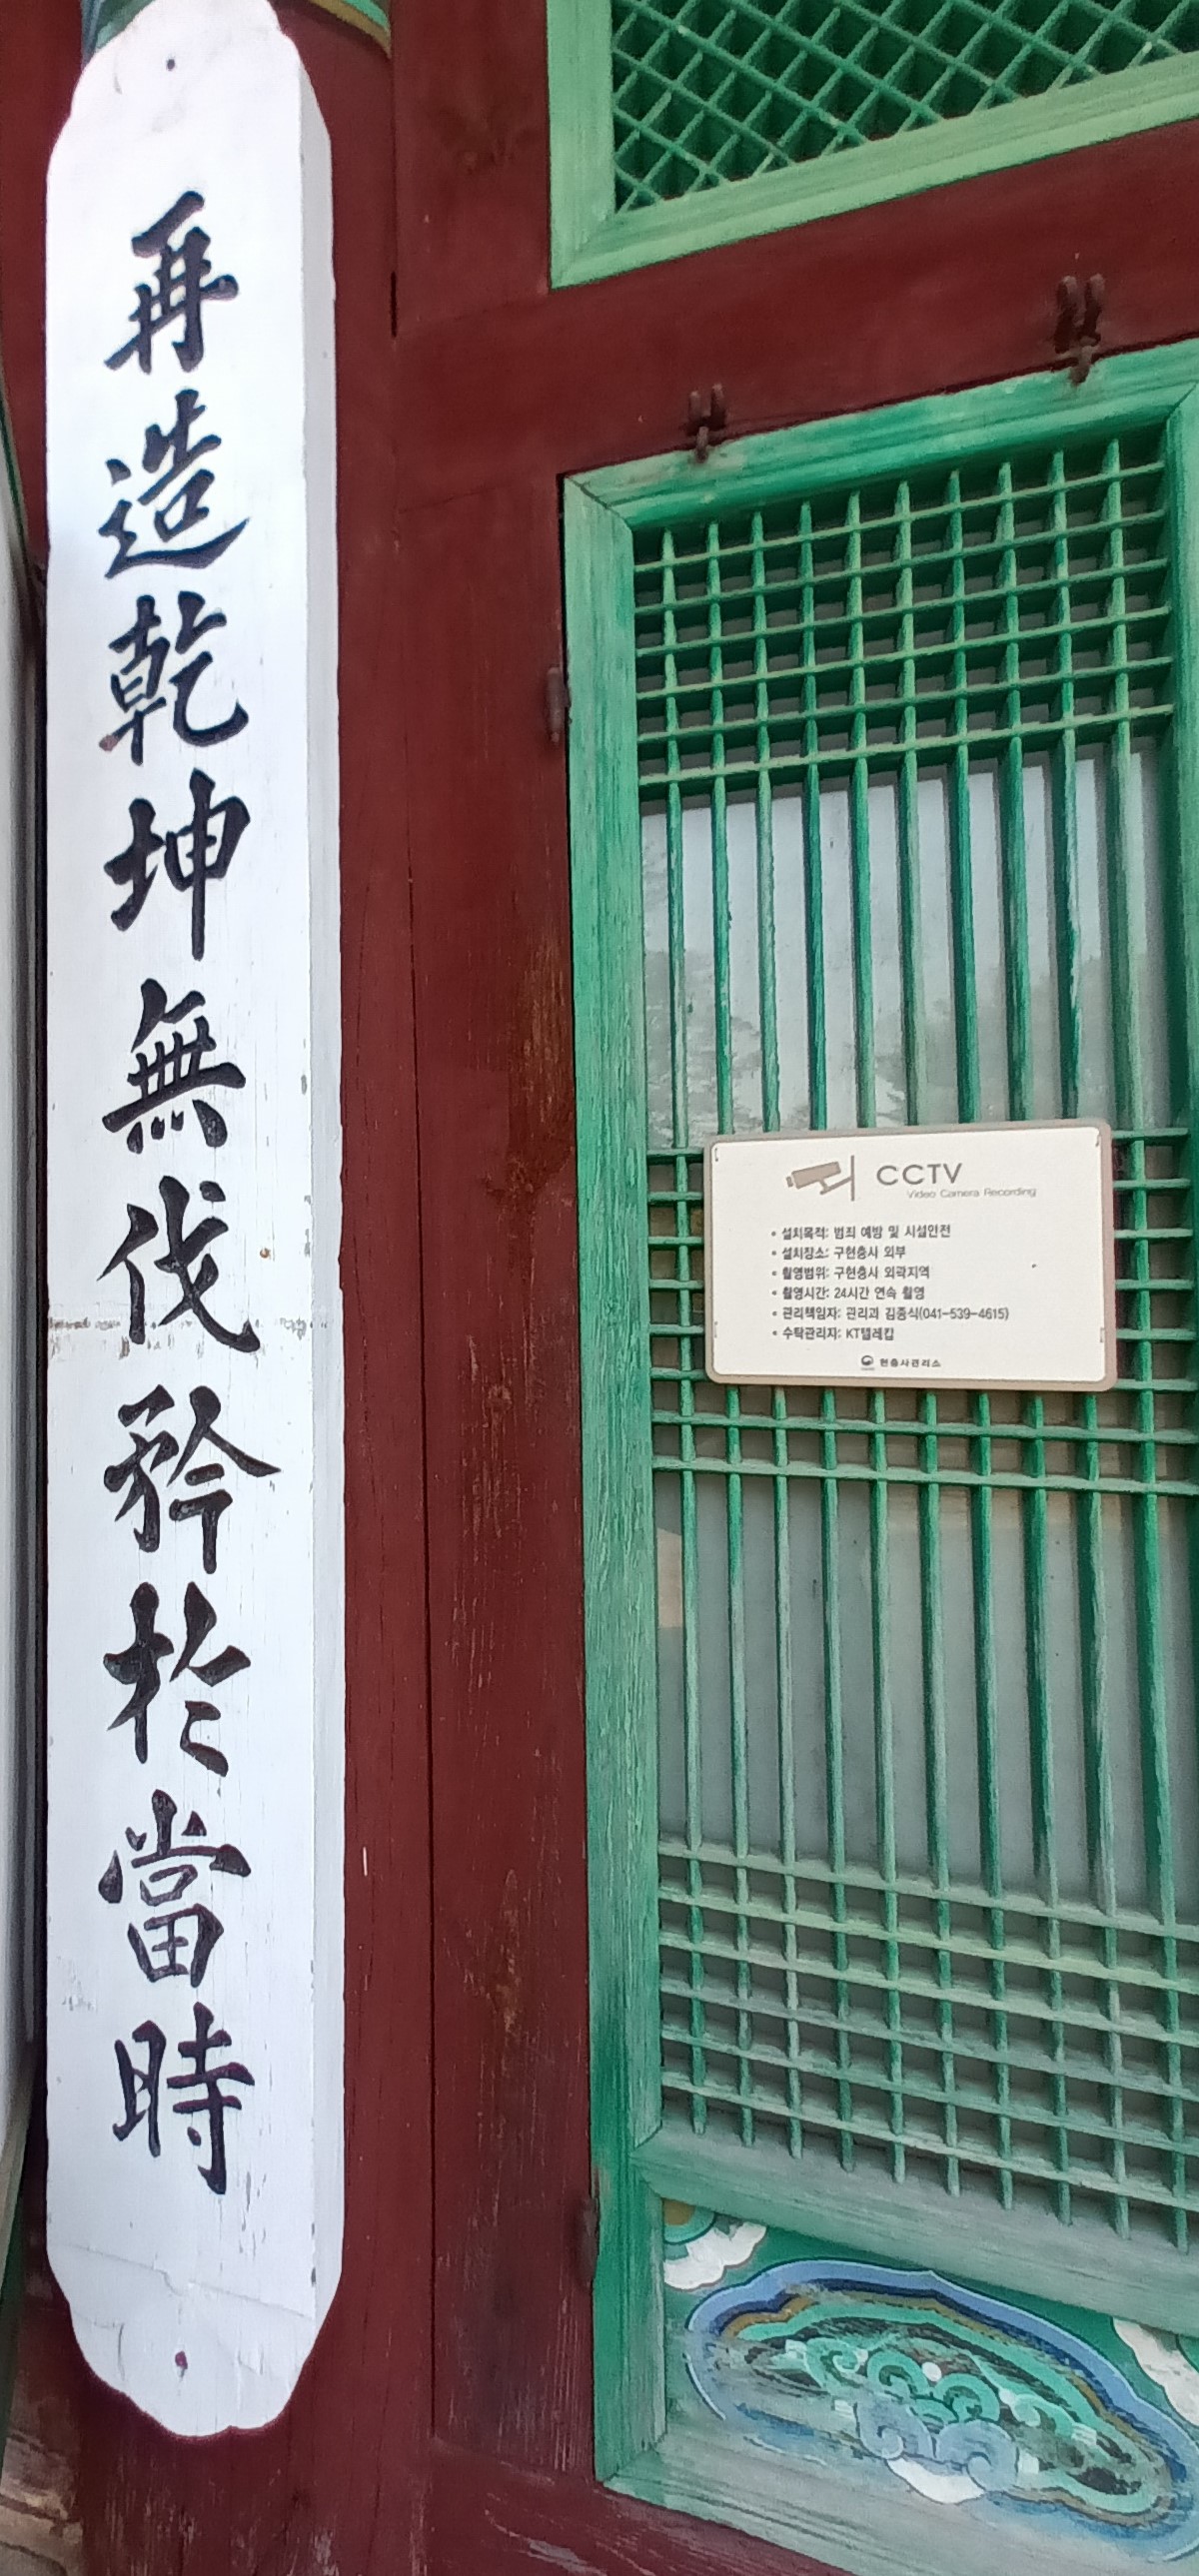 再造乾坤無伐矜於當時
CCTV
Video Camera Recording
• 설치목적: 범죄 예방 및 시설안전
• 설치장소: 구현충사 외부
• 촬영범위: 구현충사 외곽지역
• 촬영시간: 24시간 연속 촬영
• 관리책임자: 관리과 김종식(041-539-4615)
• 수탁관리자: KT텔레캅
현충사관리소